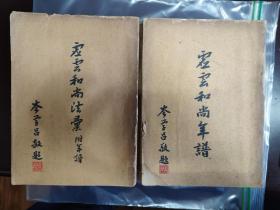 虛雲和尚法彙附年譜
岑学呂敬題
虛雲和尚年譜
岑学呂敬題